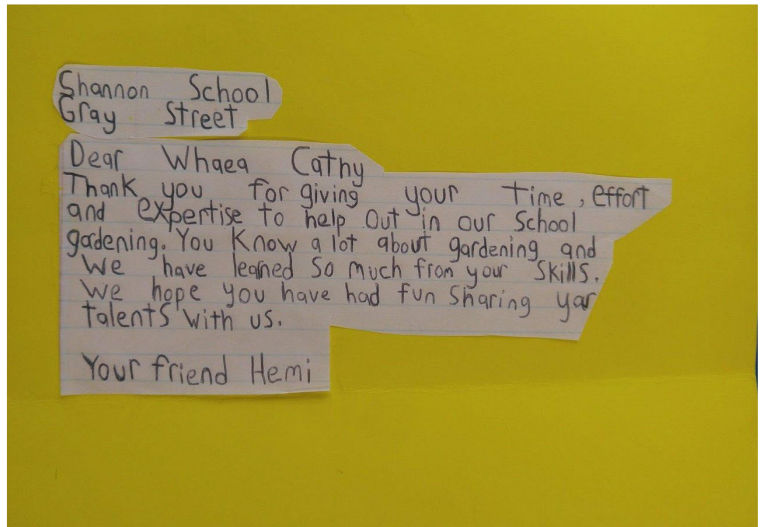 Shannon School
Gray Street
Dear Whaea Cathy
Thank you for giving your time, effort
and expertise to help out in our School
gadening. You Know a lot about gardening and
We have learned So much from your Skills.
We hope you have had fun Sharing yar
talents with us.
Your friend Hemi